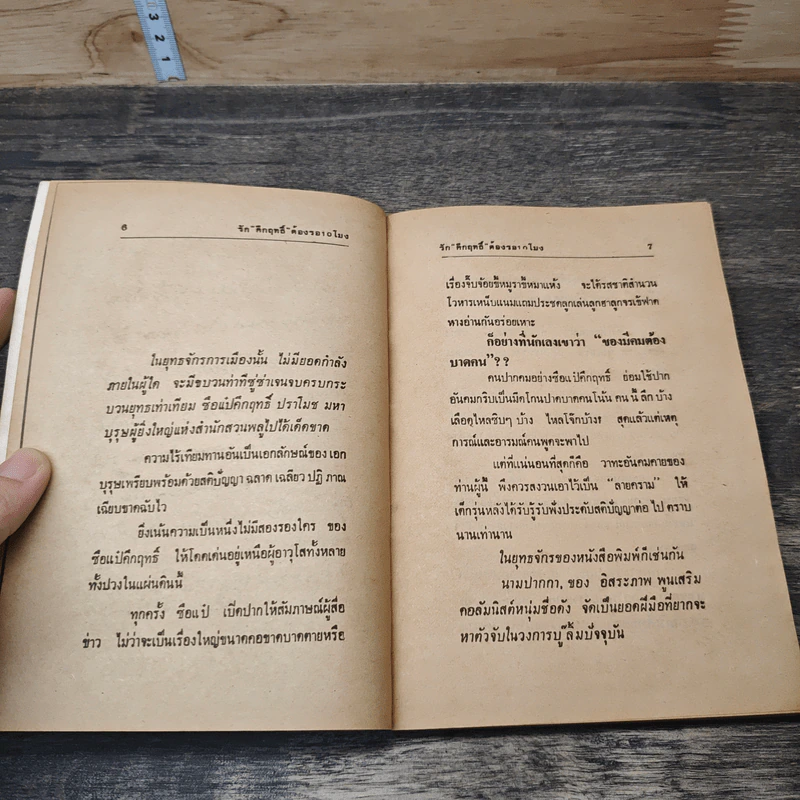 3
2
1
6
รัก"คึกฤทธิ์"ต้องรอ๑๐โมง
ในยุทธจักรการเมืองนั้น ไม่มียอดกำลัง
ภายในผู้ใด จะมีขบวนท่าทีซู่ซ่าเจนจบครบกระ
บวนยุทธเท่าเทียม ซือแป๋คึกฤทธิ์ ปราโมช มหา
บุรุษผู้ยิ่งใหญ่แห่งสำนักสวนพลูไปได้เด็ดขาด
ความไร้เทียมทานอันเป็นเอกลักษณ์ของ เอก
บุรุษเพรียบพร้อมด้วยสติปัญญา ฉลาด เฉลียว ปฏิ ภาณ
เฉียบขาดฉับไว
ยิ่งเน้นความเป็นหนึ่งไม่มีสองรองใคร ของ
ซือแป๋คึกฤทธิ์ ให้โดดเด่นอยู่เหนือผู้อาวุโสทั้งหลาย
ทั้งปวงในแผ่นดินนี้
ทุกครั้ง ซือแป๋ เปิดปากให้สัมภาษณ์ผู้สื่อ
ข่าว ไม่ว่าจะเป็นเรื่องใหญ่ขนาดคอขาดบาดตายหรือ
รัก"คึกฤทธิ์"ต้องรอ๑๐โมง
7
เรื่องจิ๊บจ้อยขี้หมูราขี้หมาแห้ง จะได้รสชาติสำนวน
โวหารเหน็บแนมแถมประชดลูกเล่นลูกฮาลูกจรเข้ฟาด
หางอ่านกันอร่อยเหาะ
ก็อย่างที่นักเลงเขาว่า "ของมีคมต้อง
บาดคน"??
คนปากคมอย่างซือแป๋คึกฤทธิ์ ย่อมใช้ปาก
อันคมกริบเป็นมีดโกนปาดบาดคนโน้น คน นี้ ลึก บ้าง
เลือดไหลซิบๆ บ้าง ไหลโจ๊กบ้าง! สุดแล้วแต่เหตุ
การณ์และอารมณ์คนพูดจะพาไป
แต่ที่แน่นอนที่สุดก็คือ วาทะอันคมคายของ
ท่านผู้นี้ พึงควรสงวนเอาไว้เป็น "ลายคราม" ให้
เด็กรุ่นหลังได้รับรู้รับฟังประดับสติปัญญาต่อ ไป ตราบ
นานเท่านาน
ในยุทธจักรของหนังสือพิมพ์ก็เช่นกัน
นามปากกา, ของ อิสระภาพ พูนเสริม
คอลัมนิสต์หนุ่มชื่อดัง จัดเป็นยอดฝีมือที่ยากจะ
หาตัวจับในวงการบู๊ลิ้มปัจจุบัน